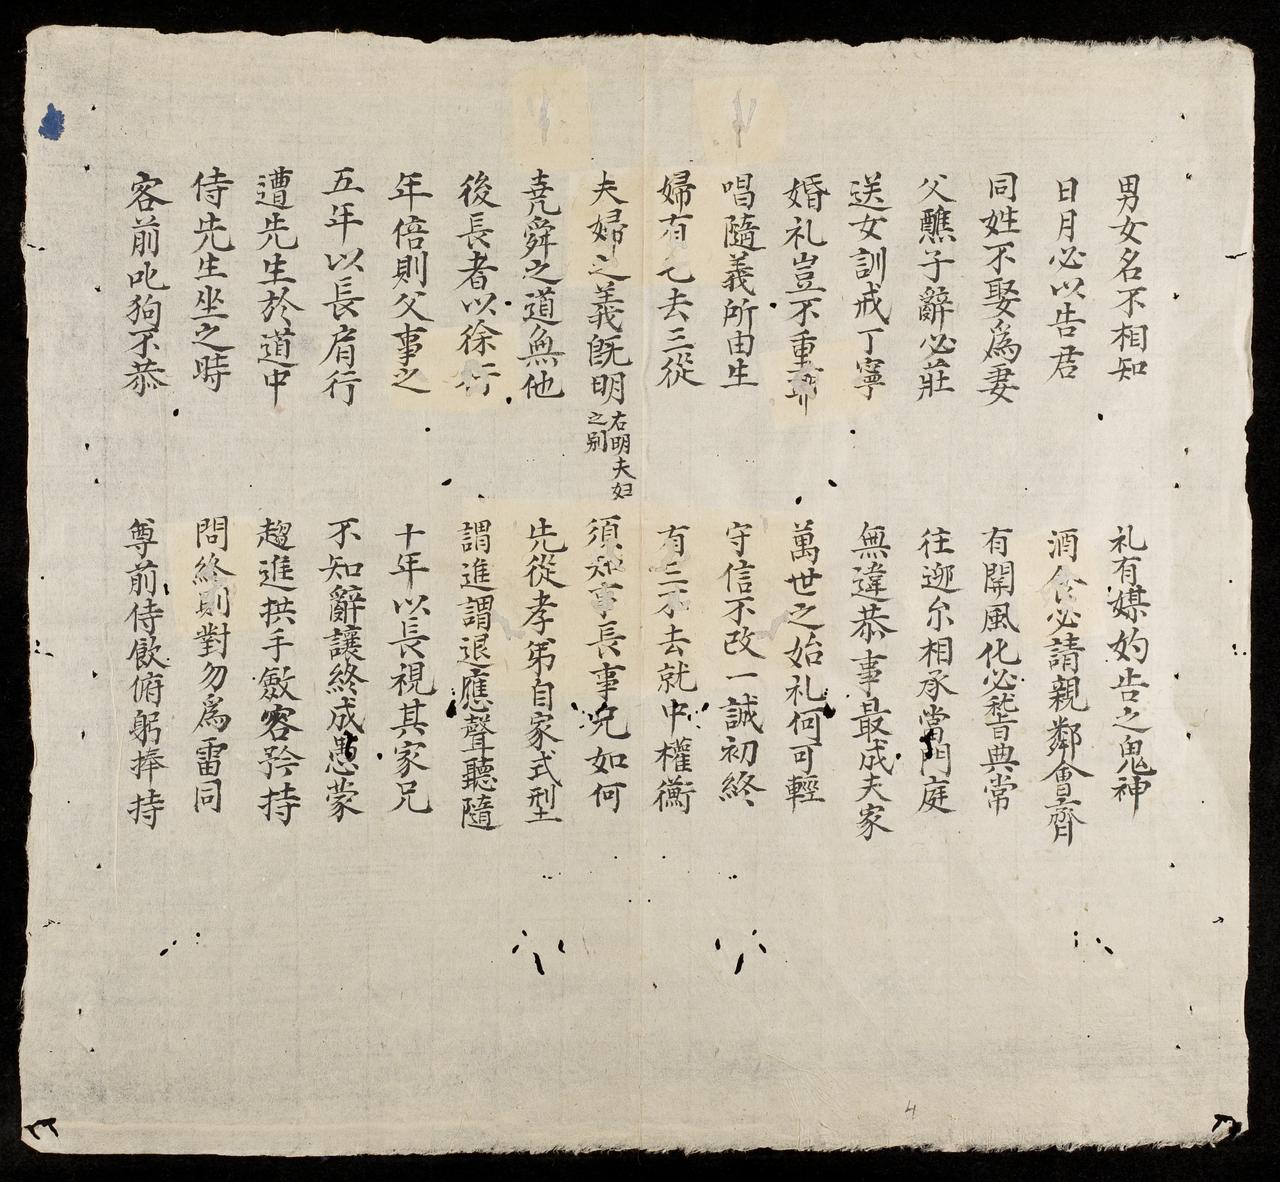 男女名不相知 礼有媒妁告之鬼神
日月必以告君 酒食必請親鄰會齊
同姓不娶爲妻 有関風化必嵆典常
父醮子辭必莊 往迎尔相承當門庭
送女訓戒丁寧 無違恭事最成夫家
婚礼豈不重耶 萬世之始礼何可輕
唱隨義所由生 守信不改一誠初終
婦有七去三從 有三不去就中權衡
夫婦之義旣明 右明夫妇之别 須知事長事兄如何
堯舜之道無他 先從孝弟自家式型
後長者以徐行 謂進謂退應聲聽隨
年倍則父事之 十年以長視其家兄
五年以長肩行 不知辭讓終成愚蒙
遭先生於道中 趨進拱手斂容矜持
侍先生坐之時 問終則對勿爲雷同
客前叱狗不恭 尊前侍飲俯躬捧持
4